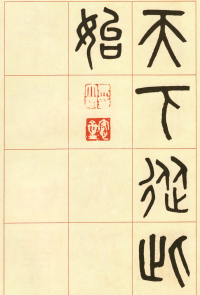 天下從此
始